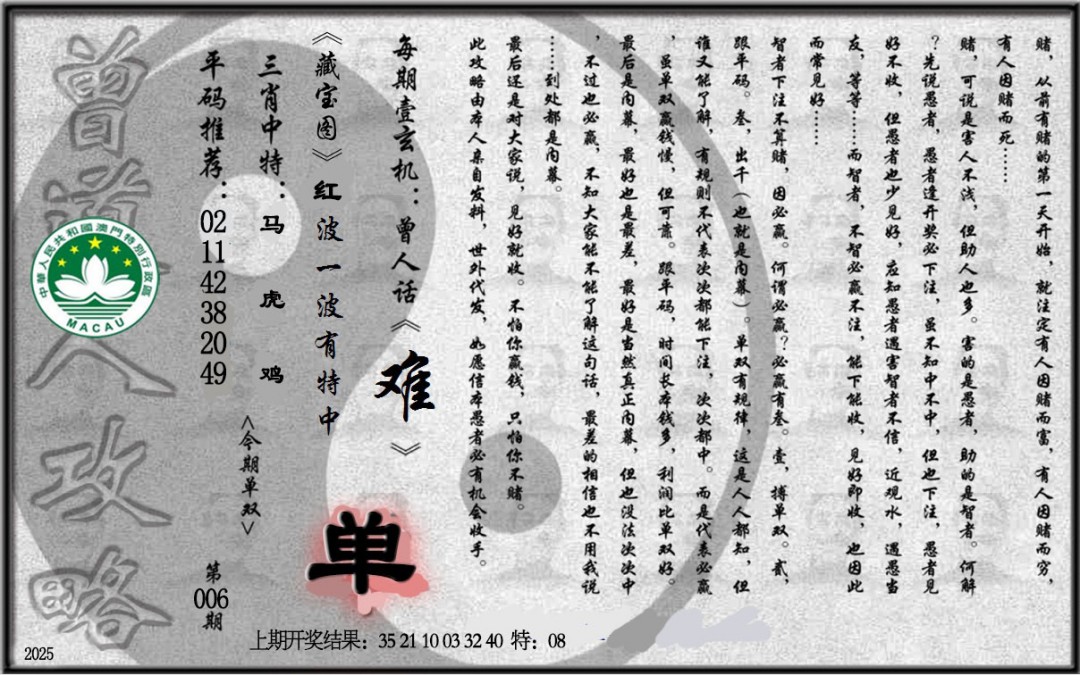 赌，从前有赌的第一天开始，就注定有人因赌而富，有人因赌而穷，
有人因赌而死……
赌，可说是害人不浅，但助人也多。害的是愚者，助的是智者。何解
？先说愚者，愚者逢开奖必下注，虽不知中不中，但也下注，愚者见
好不收，但愚者也少见好，应知愚者遇害智者不信，近观水，遇愚当
友，等等……而智者，不智必赢不注，能下能收，见好即收，也因此
而常见好……
智者下注不算赌，因必赢。何谓必赢？必赢有叁。壹，搏单双。贰，
跟平码。叁，出千（也就是内幕）。单双有规律，这是人人都知，但
谁又能了解，有规则不代表次次都能下注，次次都中。而是代表必赢
，虽单双赢钱慢，但可靠。跟平码，时间长本钱多，利润比单双好。
最后是内幕，最好也是最差，最好是当然真正内幕，但也没法次次中
，不过也必赢，不知大家能不能了解这句话，最差的相信也不用我说
……到处都是内幕。
最后还是对大家说，见好就收。不怕你赢钱，只怕你不赌。
此攻略由本人亲自发料，世外代发，如愿信本愚者必有机会收手。
每期壹玄机：曾人话《难》
《藏宝图》红波一波有特中
三肖中特：马 虎 鸡
平码推荐：02 11 42 38 20 49
<今期单双>
单
第006期
曾道人攻略
中華人民共和國澳門特別行政區
MACAU
上期开奖结果：35 21 10 03 32 40 特：08
2025